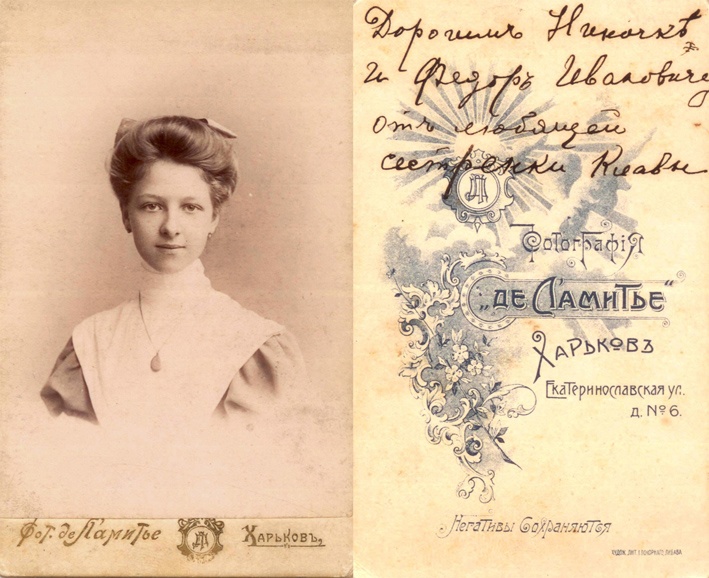 Фот. де Ламитье
Харьковъ,
Дорогимъ Ниночкѣ
и Федоръ Ивановичу
отъ любящей
сестренки Клавы
Фотографія
„ДЕ ЛАМИТЬЕ"
ХАРЬКОВЪ
Екатеринославская ул.
д. № 6.
Негативы Сохраняются